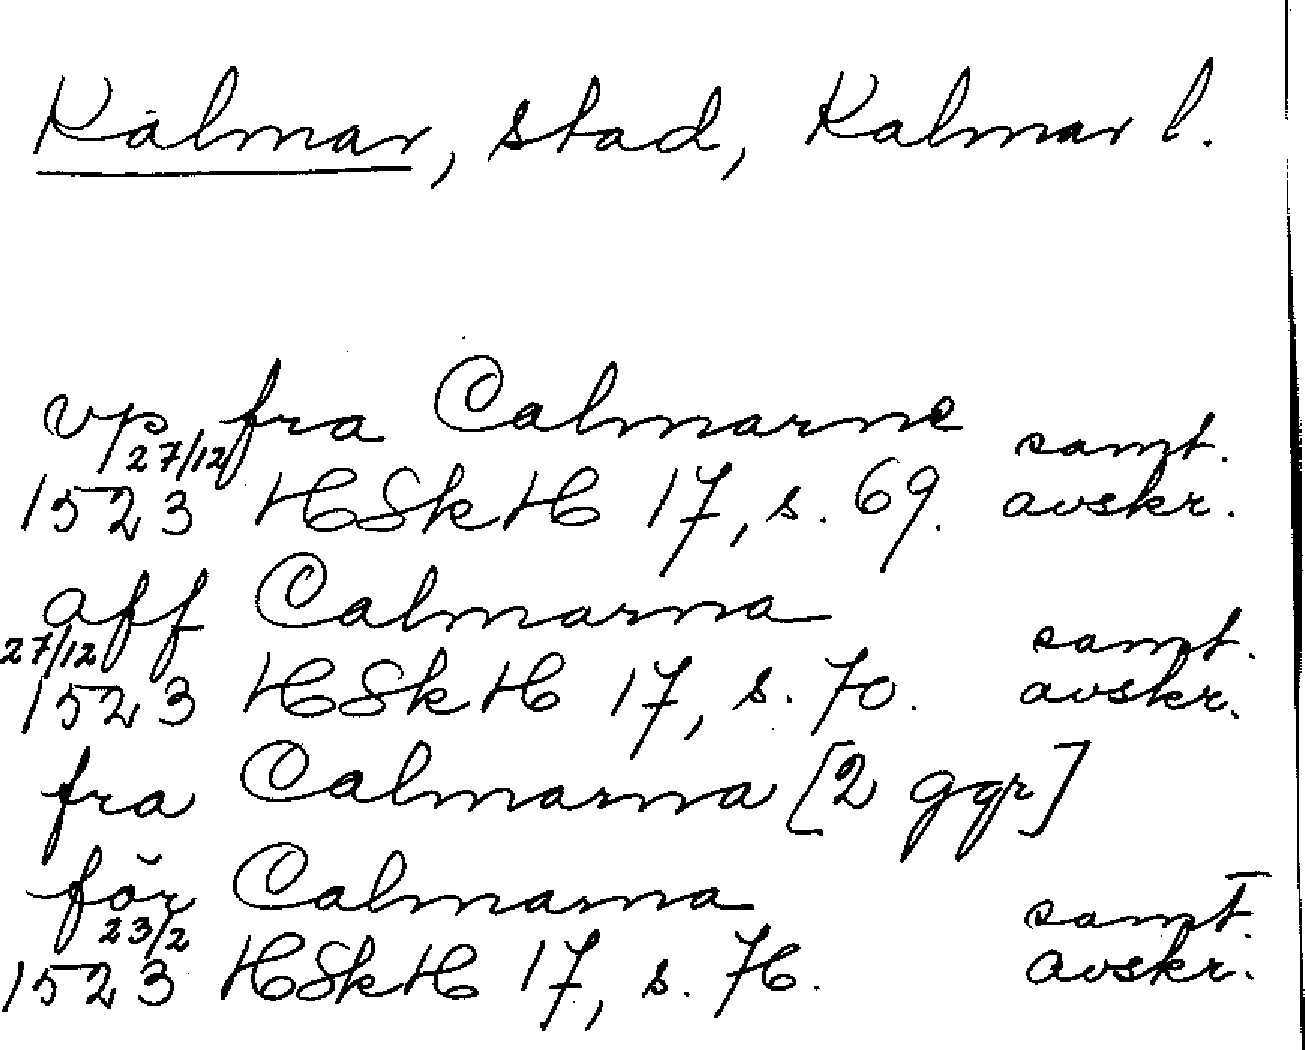 Kalmar, stad, Kalmar l.
vp fra Calmarne samt.
27/12
1523 HSkH 17, s. 69. avskr.
aff Calmarna samt.
27/12
1523 HSkH 17, s. 70. avskr.
fra Calmarna [2 ggr]
för Calmarna samt.
23/2
1523 HSkH 17, s. 76. avskr.